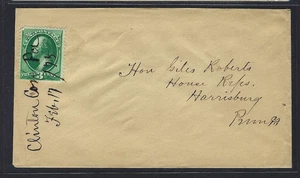 Clinton Co Pa
Feb 17
Hon Giles Roberts
House Reps.
Harrisburg
Penna